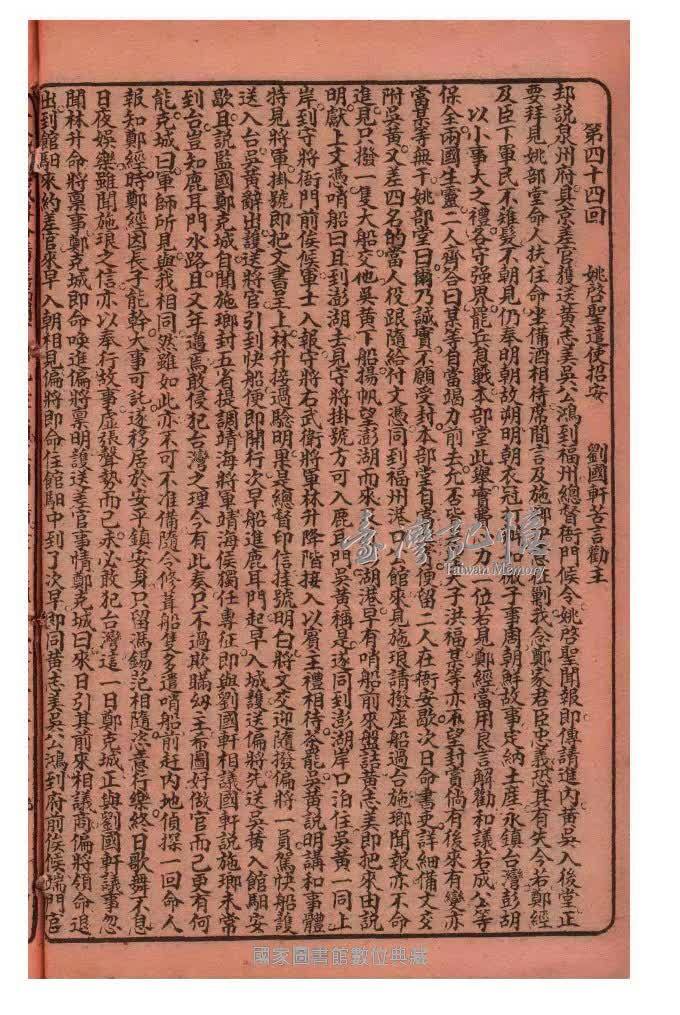 第四十四回　姚啓聖遣使招安　劉國軒苦言勸主
却說泉州府具京差官護送黃志美吳公鴻到福州總督衙門候令姚啓聖聞報即傳請進內黃吳入後堂正
要拜見姚部堂命人扶住命坐備酒相待席間言及施瑯
剿我念鄭家君臣忠義恐其有失今若鄭經
及臣下軍民不薙髮不朝見仍奉明朝故朔明朝衣冠
子事周朝鮮故事定納土産永鎮台灣彭胡
以小事大之禮各守强界罷兵息戰本部堂此舉實
力
位若見鄭經當用良言解勸和議若成公等
保全兩國生靈二人齊答曰某等自當竭力前去允否
天子洪福某等亦不望封賞倘有後來有變亦
當某等無干姚部堂曰爾乃誠實不願受封本部堂自
便留二人在衙安歇次日命書吏詳細備文交
附吳黃又差四名的當人役跟隨給付文憑同到福州港口台館來見施琅請撥座船過台施瑯聞報亦不命
進見只撥一隻大船交他吳黃下船揚帆望彭湖而來
湖港早有哨船前來盤詰黃志美即把來由說
明獻上文憑哨船曰且到彭湖去見守將掛號方可入鹿耳門吳黃稱是遂同到彭湖岸口泊住吳黃一同上
岸到守將衙門前俟候軍士入報守將右武衛將軍林升降階接入以賓主禮相待茶罷吳黃說明講和事體
特見將軍掛號即把文書呈上林升接過驗明果是總督印信挂號明白將文交迎隨撥偏將一員駕快船護
送入台吳黃辭出護送將官引到快船便即開行次早船進鹿耳門起早入城護送偏將先送吳黃入館馹安
歇且說監國鄭克𡒉自聞施瑯封五省提調靖海將軍靖海侯獨任專征即與劉國軒相議國軒說施瑯未常
到台豈知鹿耳門水路且又年邁焉敢侵犯台灣之理今有此奏只不過欺瞞幼主希圖好做官而已更有何
能克𡒉曰軍師所見與我相同然雖如此亦不可不准備隨令修葺船隻多遣哨船前赶內地偵探一回命人
報知鄭經時鄭經因長子能幹大事可託遂移居於安平鎮安身只留馮錫范相隨恣意行樂終日歌舞不息
日夜娛樂雖聞施琅之信亦以奉行故事虛張聲勢而已未必敢犯台灣這一日鄭克𡒉正與劉國軒議事忽
聞林升命將禀事鄭克𡒉即命喚進偏將禀明護送差官事情鄭克𡒉曰來日引其前來相議商偏將領命退
出到館馹來約差官來早入朝相見偏將即命住館馹中到了次早即同黃志美吳公鴻到府前俟候端門官
臺灣記憶
Taiwan Memory
國家圖書館數位典藏